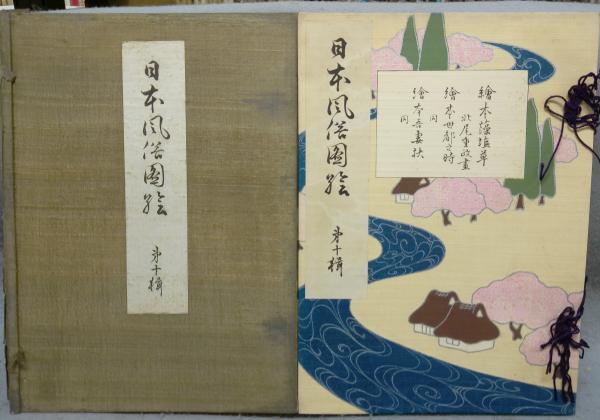 日本風俗図絵
第十輯
日本風俗図絵
第十輯
繪本藻塩草
北尾重政畫
繪本世都之時
同
繪本吾妻抉
同